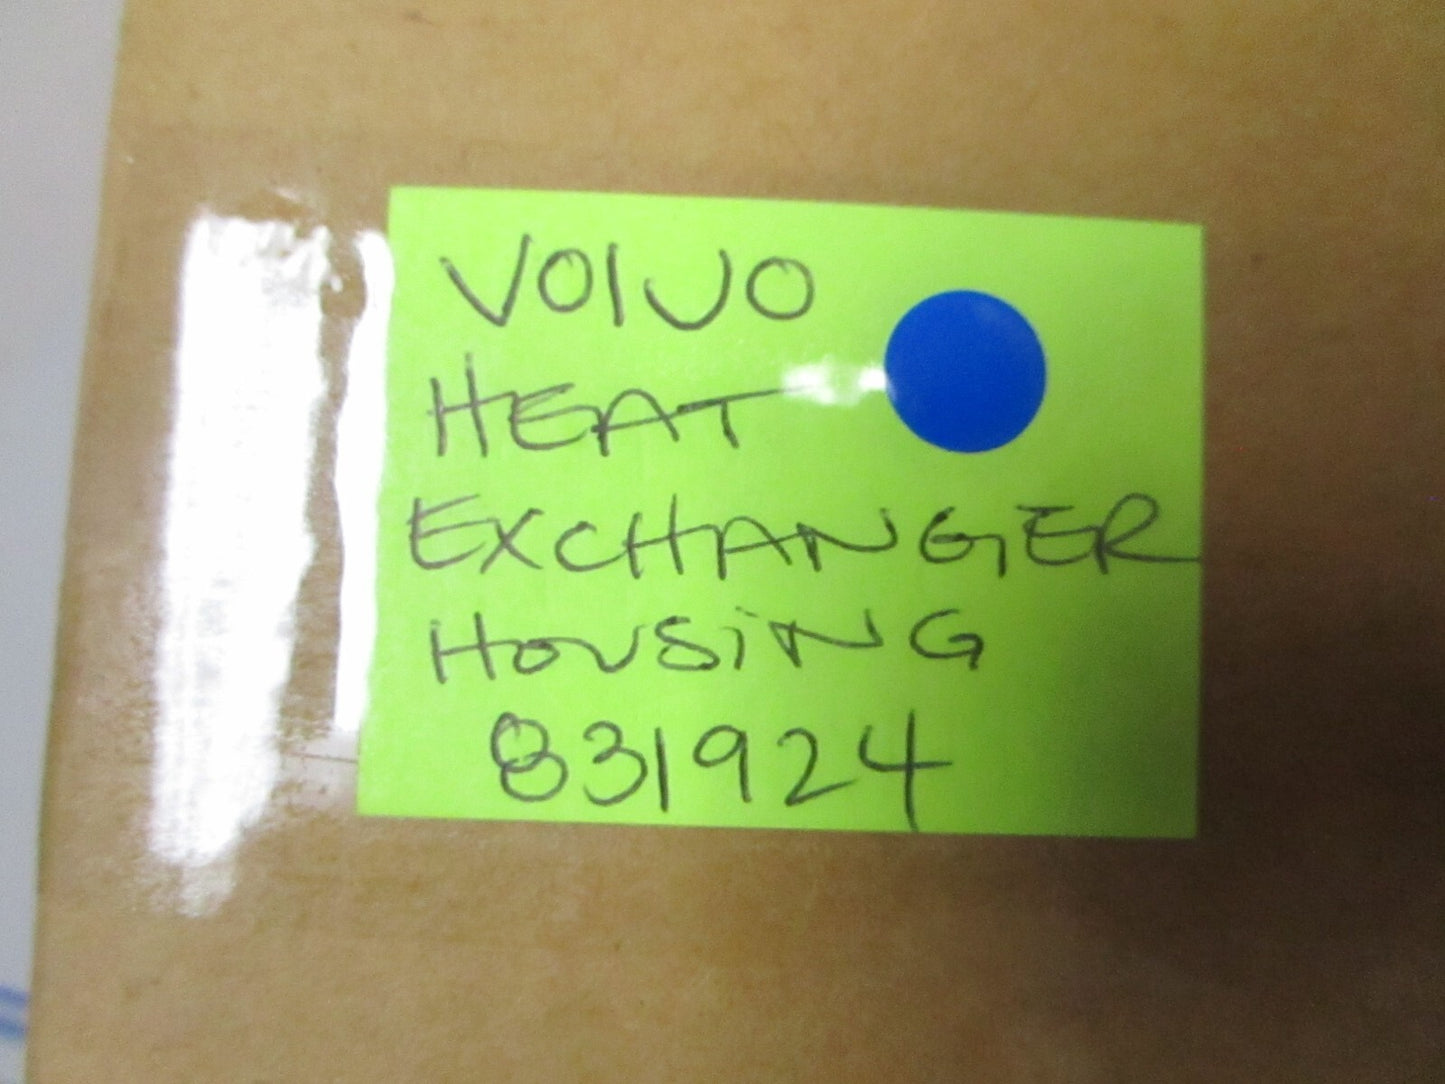 VOLVO
HEAT
EXCHANGER
HOUSING
831924